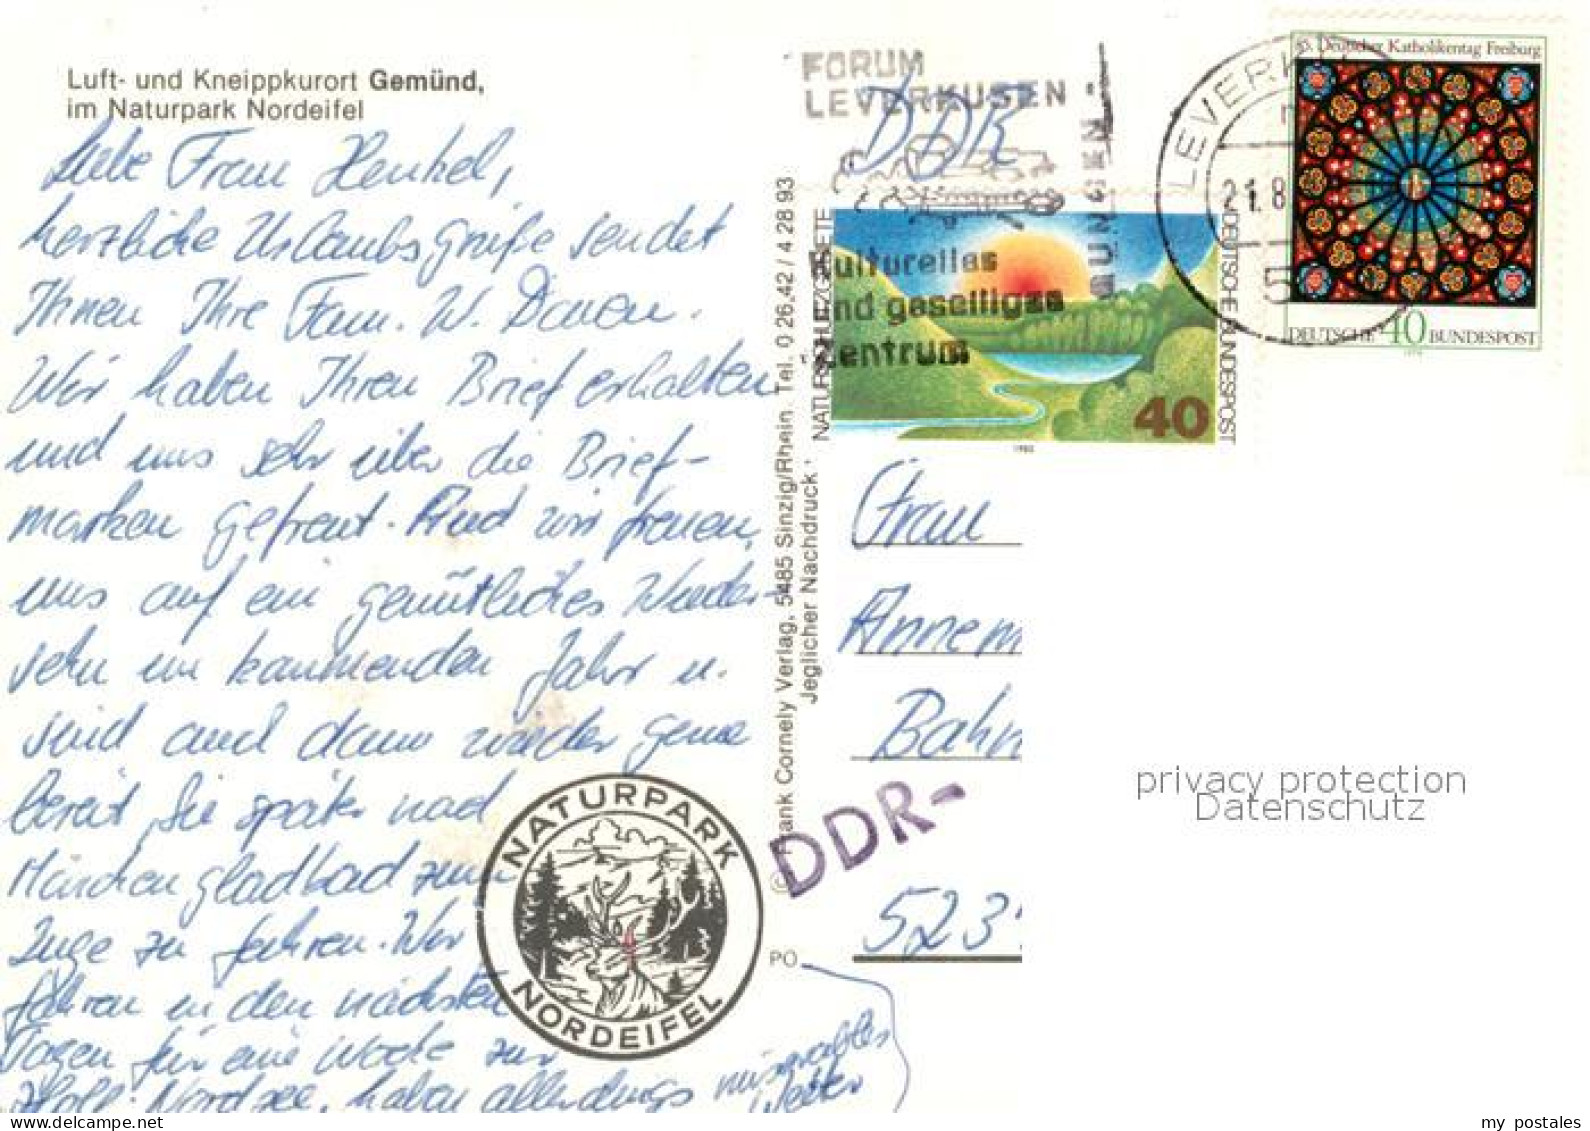 Luft- und Kneippkurort Gemünd,
im Naturpark Nordeifel
Liebe Frau Henkel,
herzliche Urlaubsgrüße sendet
Ihnen Ihre Fam. W. Dänen.
Wir haben Ihren Brief erhalten
und uns sehr über die Brief-
marken gefreut. Und wir freuen
uns auf ein gemütliches Wieder-
sehn im kommenden Jahr u.
sind auch dann wieder gerne
bereit Sie später nach
Mönchengladbach zum
Zuge zu fahren. Wir
fahren in den nächsten
Tagen für eine Woche zur
Holl. Nordsee, haben allerdings miserables
Wetter
NATURPARK
NORDEIFEL
Frank Cornely Verlag, 5485 Sinzig/Rhein, Tel. 0 26 42 / 4 28 93
Jeglicher Nachdruck
FORUM
LEVERKUSEN
DDR
Kulturelles
und geselliges
Zentrum
LEVERK
21.8
5
85. Deutscher Katholikentag Freiburg
DEUTSCHE 40 BUNDESPOST
NATURSCHUTZGEBIETE
DEUTSCHE BUNDESPOST
40
1982
Frau
Annem
Bahn
DDR-
5231
PO
privacy protection
Datenschutz
my postales